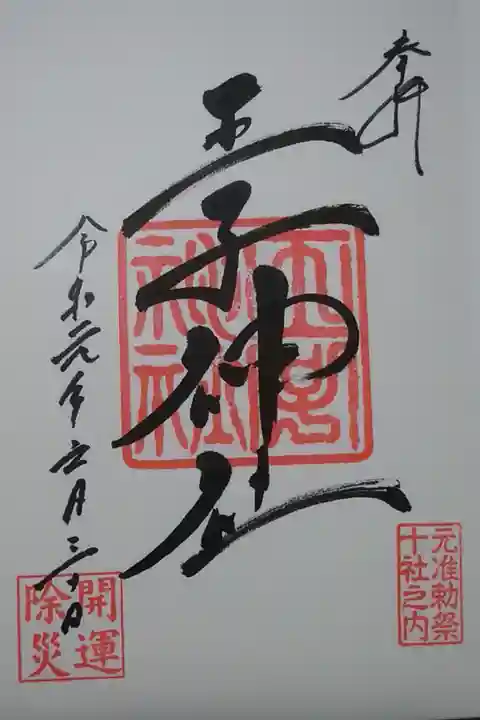 奉拝
元准勅祭
十社之内
王子神社
王子
神社
令和元年六月三十日
開運
除災